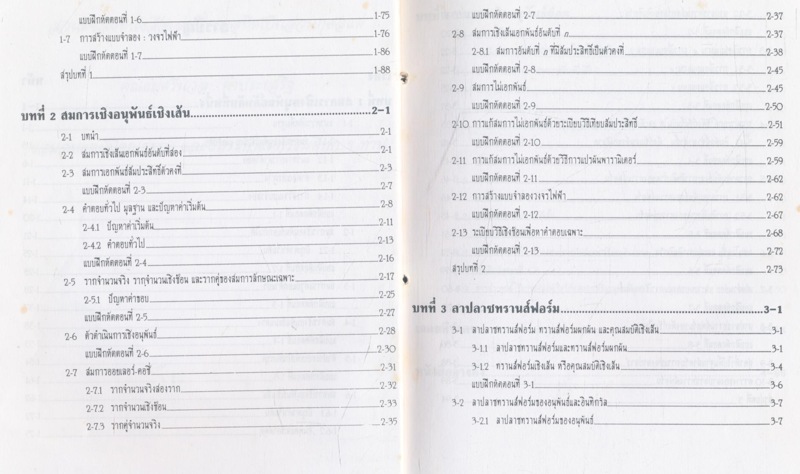 แบบฝึกหัดตอนที่ 1-6 1-75
1-7 การสร้างแบบจำลอง : วงจรไฟฟ้า 1-76
แบบฝึกหัดตอนที่ 1-7 1-86
สรุปบทที่ 1 1-88
บทที่ 2 สมการเชิงอนุพันธ์เชิงเส้น 2-1
2-1 บทนำ 2-1
2-2 สมการเชิงเส้นเอกพันธ์อันดับที่สอง 2-1
2-3 สมการเอกพันธ์สัมประสิทธิ์ตัวคงที่ 2-3
แบบฝึกหัดตอนที่ 2-3 2-7
2-4 คำตอบทั่วไป มูลฐาน และปัญหาค่าเริ่มต้น 2-8
2-4.1 ปัญหาค่าเริ่มต้น 2-11
2-4.2 คำตอบทั่วไป 2-13
แบบฝึกหัดตอนที่ 2-4 2-16
2-5 รากจำนวนจริง รากจำนวนเชิงซ้อน และรากคู่ของสมการลักษณะเฉพาะ 2-17
2-5.1 ปัญหาค่าขอบ 2-25
แบบฝึกหัดตอนที่ 2-5 2-27
2-6 ตัวดำเนินการเชิงอนุพันธ์ 2-28
แบบฝึกหัดตอนที่ 2-6 2-30
2-7 สมการออยเลอร์-คอชี่ 2-31
2-7.1 รากจำนวนจริงสองราก 2-32
2-7.2 รากจำนวนเชิงซ้อน 2-33
2-7.3 รากคู่จำนวนจริง 2-35
แบบฝึกหัดตอนที่ 2-7 2-37
2-8 สมการเชิงเส้นเอกพันธ์อันดับที่ n 2-37
2-8.1 สมการอันดับที่ n ที่มีสัมประสิทธิ์เป็นตัวคงที่ 2-38
แบบฝึกหัดตอนที่ 2-8 2-45
2-9 สมการไม่เอกพันธ์ 2-45
แบบฝึกหัดตอนที่ 2-9 2-50
2-10 การแก้สมการไม่เอกพันธ์ด้วยระเบียบวิธีเทียบสัมประสิทธิ์ 2-51
แบบฝึกหัดตอนที่ 2-10 2-59
2-11 การแก้สมการไม่เอกพันธ์ด้วยวิธีการแปรผันพารามิเตอร์ 2-59
แบบฝึกหัดตอนที่ 2-11 2-62
2-12 การสร้างแบบจำลองวงจรไฟฟ้า 2-62
แบบฝึกหัดตอนที่ 2-12 2-67
2-13 ระเบียบวิธีเชิงซ้อนเพื่อหาคำตอบเฉพาะ 2-68
แบบฝึกหัดตอนที่ 2-13 2-72
สรุปบทที่ 2 2-73
บทที่ 3 ลาปลาซทรานส์ฟอร์ม 3-1
3-1 ลาปลาซทรานส์ฟอร์ม ทรานส์ฟอร์มผกผัน และคุณสมบัติเชิงเส้น 3-1
3-1.1 ลาปลาซทรานส์ฟอร์มและทรานส์ฟอร์มผกผัน 3-1
3-1.2 ทรานส์ฟอร์มเชิงเส้น หรือคุณสมบัติเชิงเส้น 3-4
แบบฝึกหัดตอนที่ 3-1 3-6
3-2 ลาปลาซทรานส์ฟอร์มของอนุพันธ์และอินทิกรัล 3-7
3-2.1 ลาปลาซทรานส์ฟอร์มของอนุพันธ์ 3-7